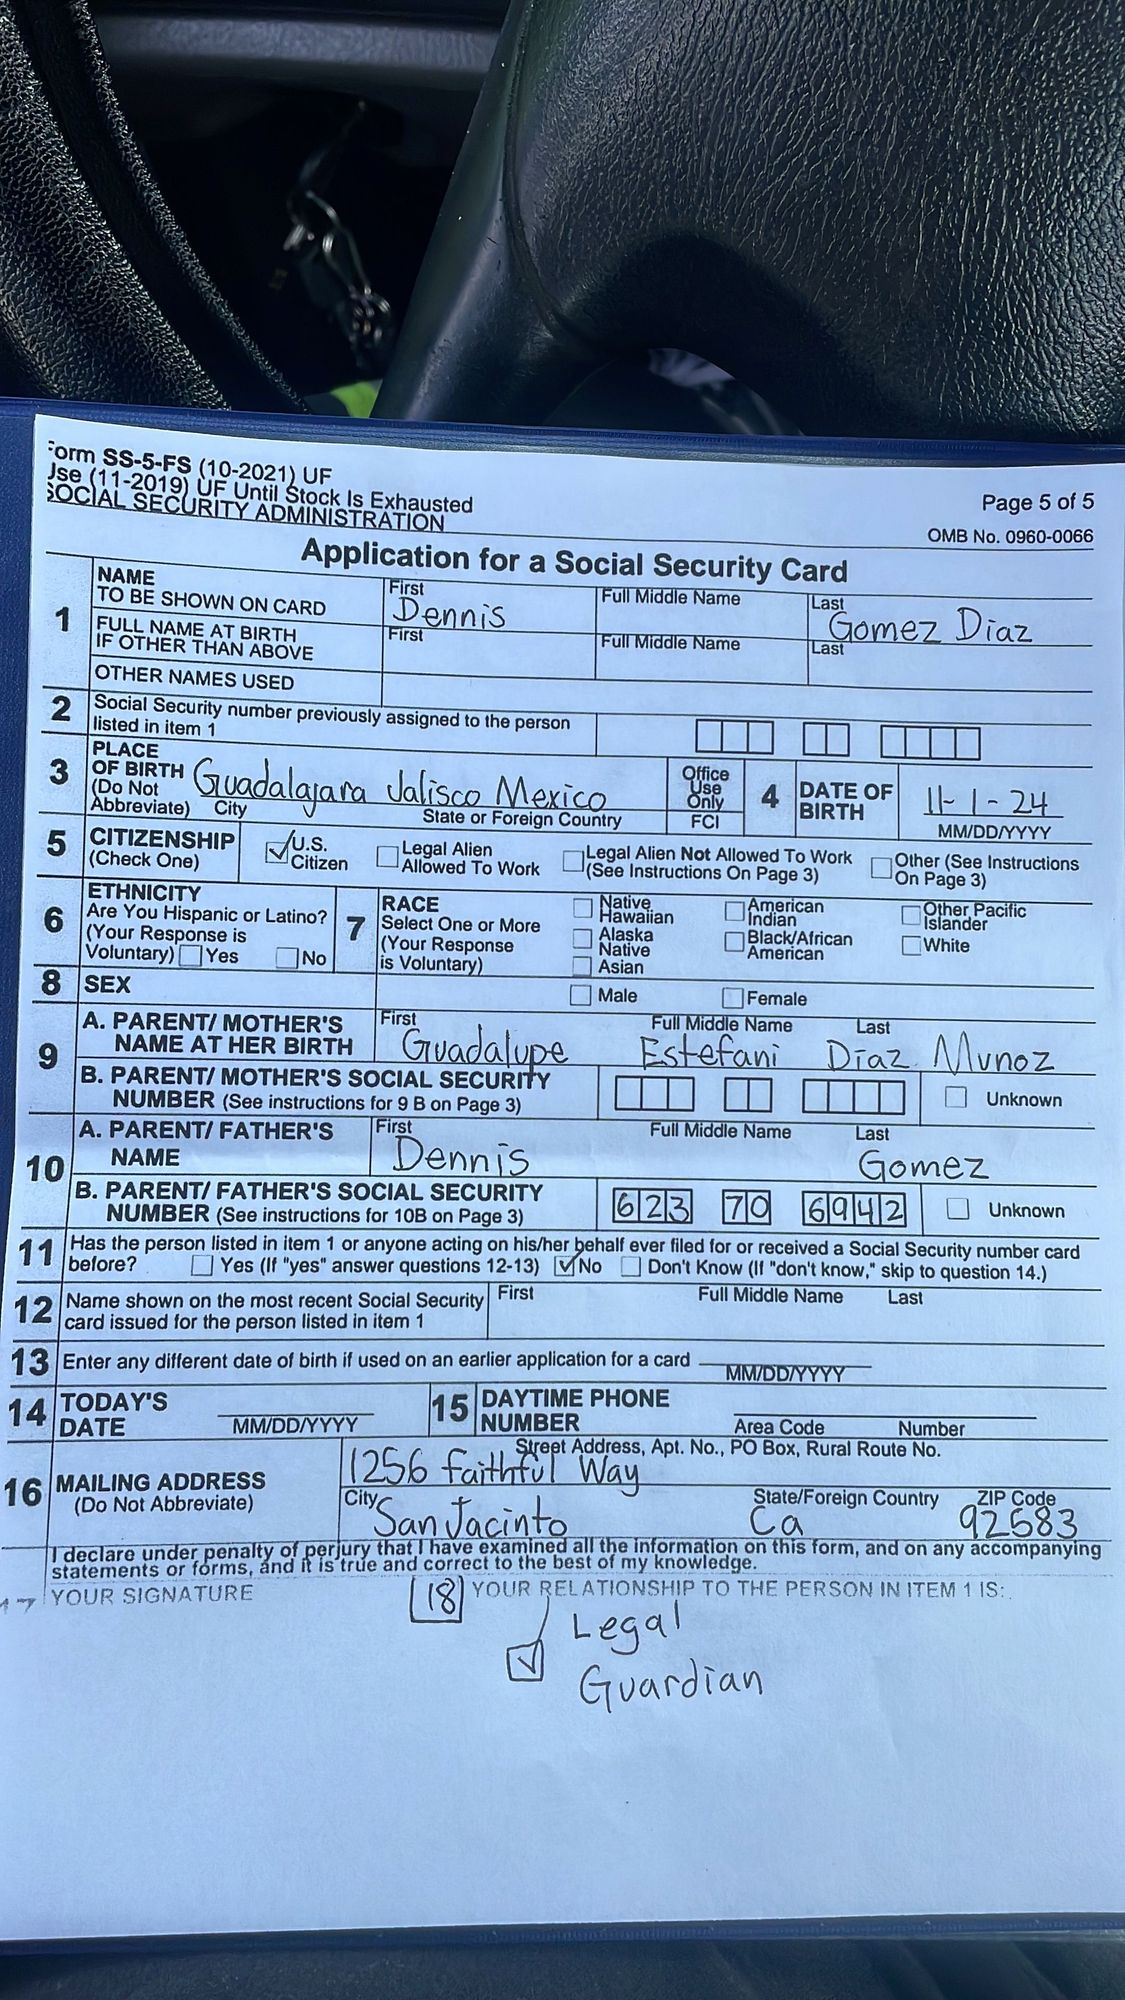 Form SS-5-FS (10-2021) UF
Use (11-2019) UF Until Stock Is Exhausted
SOCIAL SECURITY ADMINISTRATION
Page 5 of 5
OMB No. 0960-0066
Application for a Social Security Card
1 NAME TO BE SHOWN ON CARD
First Full Middle Name Last
Dennis Gomez Diaz
FULL NAME AT BIRTH IF OTHER THAN ABOVE
First Full Middle Name Last
OTHER NAMES USED
2 Social Security number previously assigned to the person
listed in item 1
3 PLACE OF BIRTH
(Do Not Abbreviate)
Guadalajara Jalisco Mexico
City State or Foreign Country
Office Use Only
FCI
4 DATE OF BIRTH
11-1-24
MM/DD/YYYY
5 CITIZENSHIP
(Check One)
U.S. Citizen
Legal Alien Allowed To Work
Legal Alien Not Allowed To Work (See Instructions On Page 3)
Other (See Instructions On Page 3)
6 ETHNICITY
Are You Hispanic or Latino?
(Your Response is Voluntary) Yes No
7 RACE
Select One or More
(Your Response is Voluntary)
Native Hawaiian
Alaska Native
Asian
American Indian
Black/African American
Other Pacific Islander
White
8 SEX
Male Female
9 A. PARENT/ MOTHER'S NAME AT HER BIRTH
First Full Middle Name Last
Guadalupe Estefani Diaz Munoz
B. PARENT/ MOTHER'S SOCIAL SECURITY
NUMBER (See instructions for 9 B on Page 3)
Unknown
10 A. PARENT/ FATHER'S NAME
First Full Middle Name Last
Dennis Gomez
B. PARENT/ FATHER'S SOCIAL SECURITY
NUMBER (See instructions for 10B on Page 3)
623 70 6942
Unknown
11 Has the person listed in item 1 or anyone acting on his/her behalf ever filed for or received a Social Security number card
before? Yes (If "yes" answer questions 12-13) No Don't Know (If "don't know," skip to question 14.)
12 Name shown on the most recent Social Security
card issued for the person listed in item 1
First Full Middle Name Last
13 Enter any different date of birth if used on an earlier application for a card
MM/DD/YYYY
14 TODAY'S DATE
MM/DD/YYYY
15 DAYTIME PHONE NUMBER
Area Code Number
16 MAILING ADDRESS
(Do Not Abbreviate)
Street Address, Apt. No., PO Box, Rural Route No.
1256 Faithful Way
City State/Foreign Country ZIP Code
San Jacinto Ca 92583
I declare under penalty of perjury that I have examined all the information on this form, and on any accompanying
statements or forms, and it is true and correct to the best of my knowledge.
17 YOUR SIGNATURE
18 YOUR RELATIONSHIP TO THE PERSON IN ITEM 1 IS:
Legal
Guardian